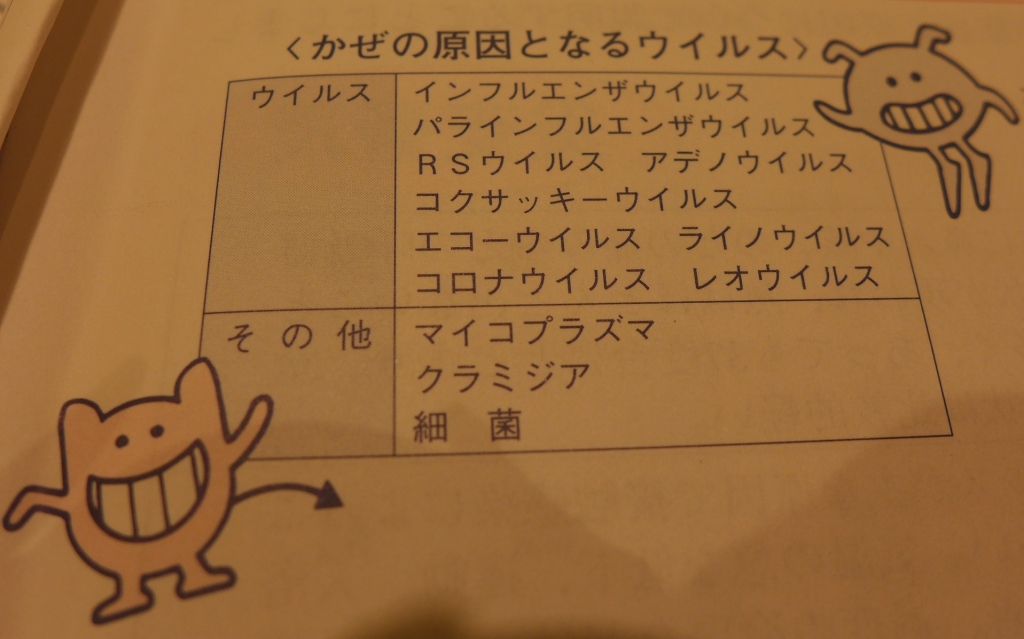 〈かぜの原因となるウイルス〉
ウイルス
インフルエンザウイルス
パラインフルエンザウイルス
RSウイルス　アデノウイルス
コクサッキーウイルス
エコーウイルス　ライノウイルス
コロナウイルス　レオウイルス
その他
マイコプラズマ
クラミジア
細　菌